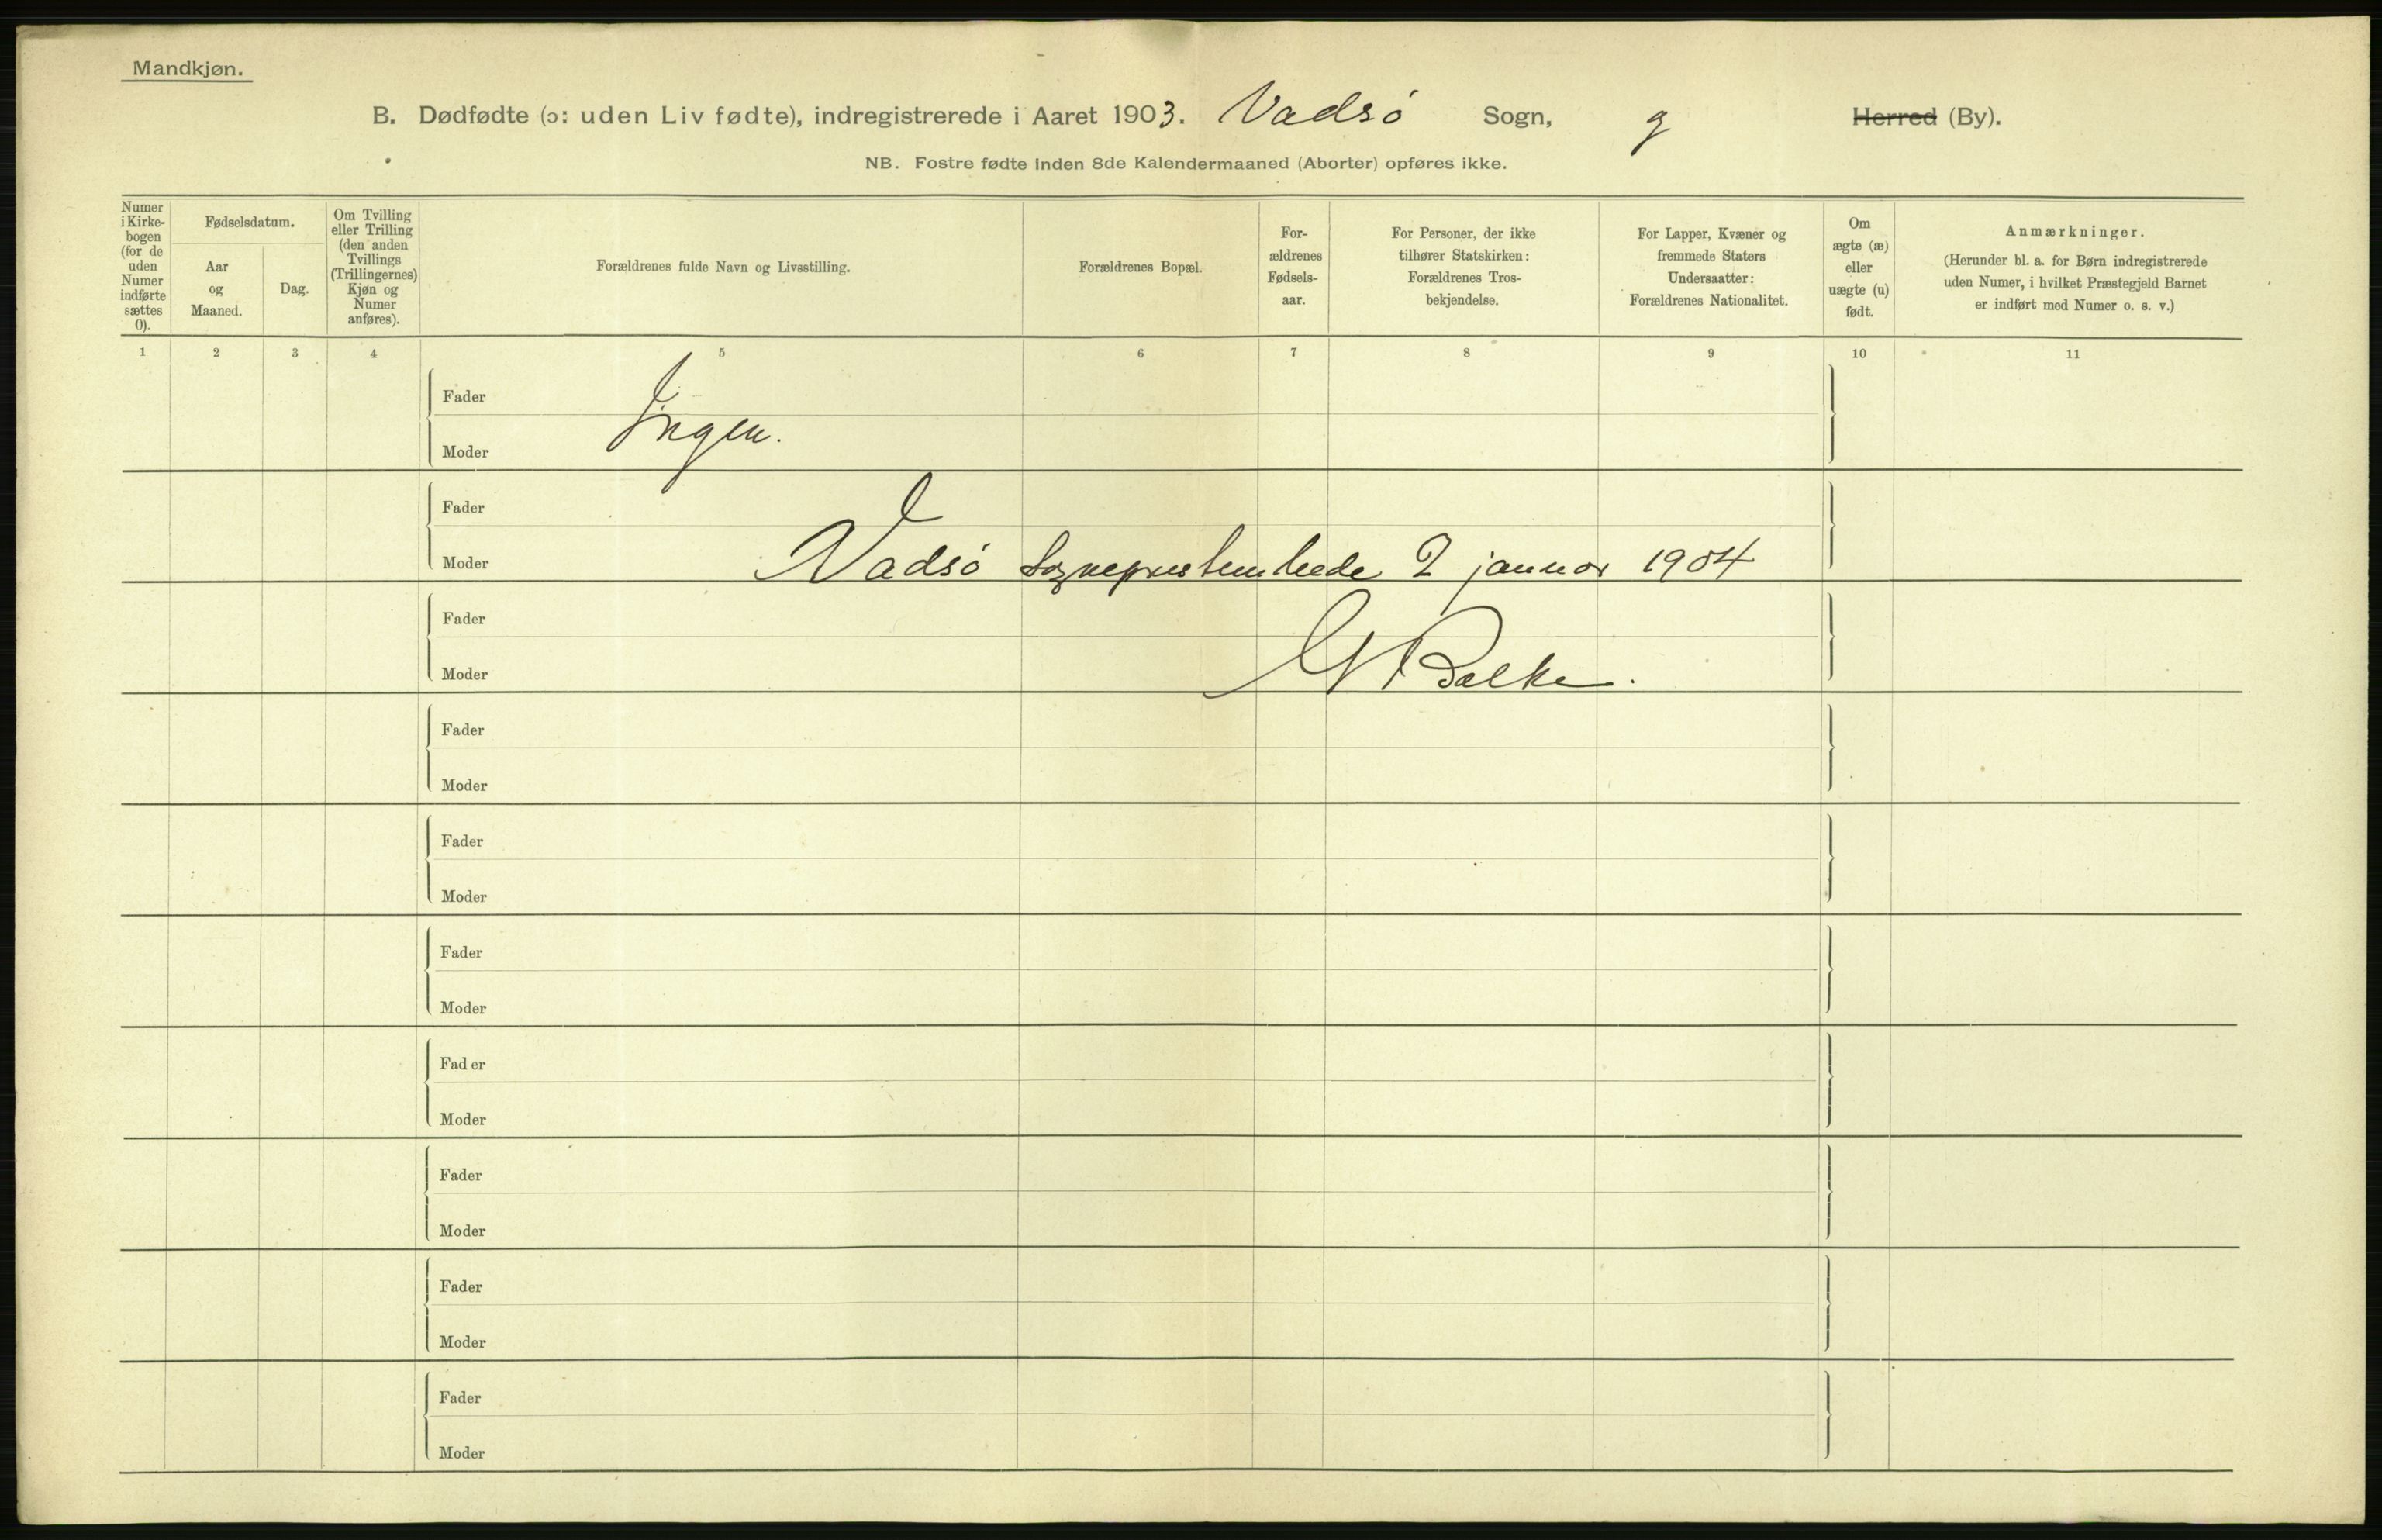 Mandkjøn.
B. Dødfødte (ɔ: uden Liv fødte), indregistrerede i Aaret 1903. Vadsö Sogn, Herred (By).
NB. Fostre fødte inden 8de Kalendermaaned (Aborter) opføres ikke.
Numer
i Kirke-
bogen
(for de
uden
Numer
indførte
sættes
0).
Fødselsdatum.
Aar
og
Maaned.
Dag.
Om Tvilling
eller Trilling
(den anden
Tvillings
(Trillingernes)
Kjøn og
Numer
anføres).
Forældrenes fulde Navn og Livsstilling.
Forældrenes Bopæl.
For-
ældrenes
Fødsels-
aar.
For Personer, der ikke
tilhører Statskirken:
Forældrenes Tros-
bekjendelse.
For Lapper, Kvæner og
fremmede Staters
Undersaatter:
Forældrenes Nationalitet.
Om
ægte (æ)
eller
uægte (u)
født.
Anmærkninger.
(Herunder bl. a. for Børn indregistrerede
uden Numer, i hvilket Præstegjeld Barnet
er indført med Numer o. s. v.)
1 2 3 4 5 6 7 8 9 10 11
Fader
Ingen.
Moder
Fader
Moder Vadsö Sogneprestembede 2 januar 1904
Fader
Moder G Balke.
Fader
Moder
Fader
Moder
Fader
Moder
Fader
Moder
Fader
Moder
Fader
Moder
Fader
Moder